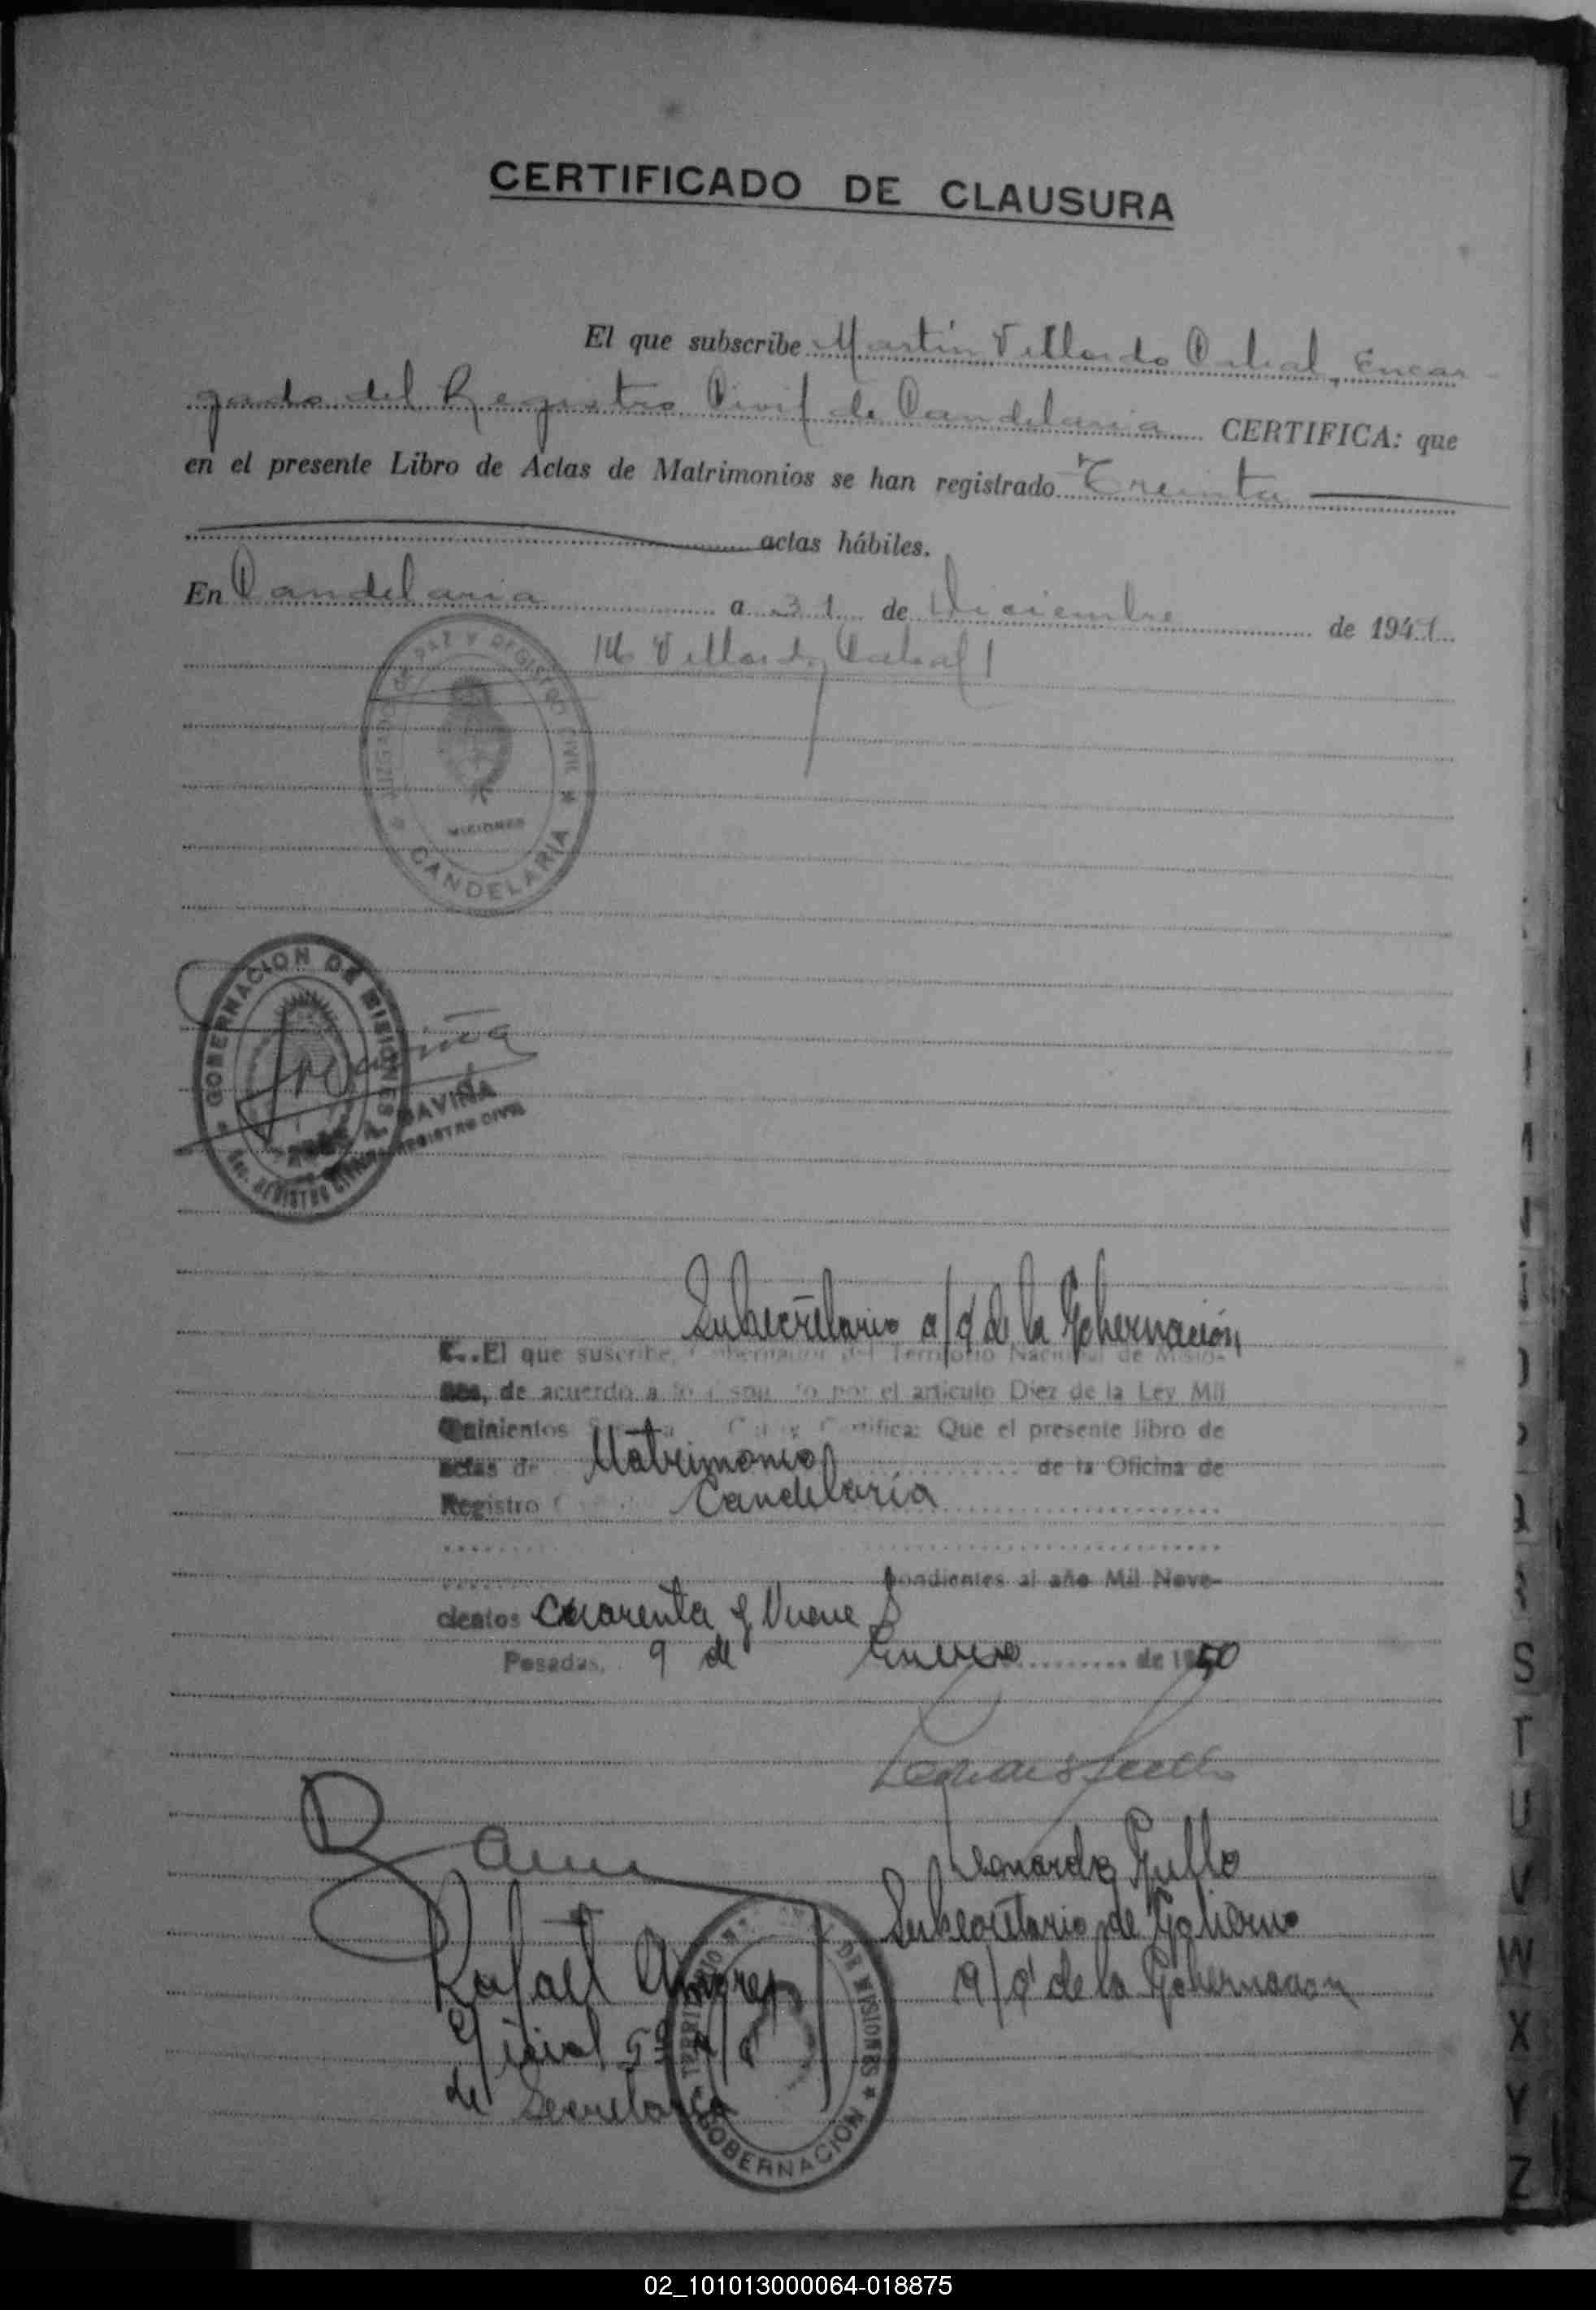 CERTIFICADO DE CLAUSURA
El que subscribe Martín Villordo Cabral, Encar-
gado del Registro Civil de Candelaria CERTIFICA: que
en el presente Libro de Actas de Matrimonios se han registrado Treinta
actas hábiles.
En Candelaria a 31 de Diciembre de 194
M Villordo Cabral
JUZGADO DE PAZ Y REGISTRO CIVIL
MISIONES
CANDELARIA
GOBERNACION DE MISIONES
A. DAVIÑA
REGISTRO CIVIL
Subsecretario a/c de la Gobernación,
El que suscribe, Gobernador del Territorio Nacional de Misio-
nes, de acuerdo a lo dispuesto por el artículo Diez de la Ley Mil
Quinientos Certifica: Que el presente libro de
actas de Matrimonios de la Oficina de
Registro Candelaria
pondientes al año Mil Nove-
cientos Cuarenta y Nueve
Posadas, 9 de Enero de 1950
Leonardo Gullo
Subsecretario de Gobierno
a/c de la Gobernación
Rafael
Oficial 5º
de Secretaría
TERRITORIO DE MISIONES
GOBERNACION
S
T
U
V
W
X
Y
Z
02_101013000064-018875